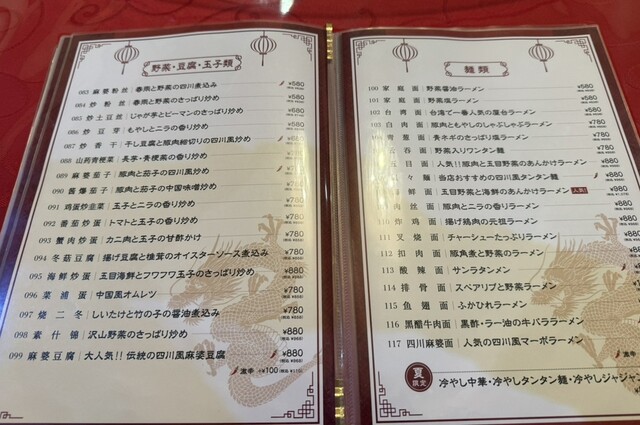 野菜・豆腐・玉子類
083 麻婆粉丝 春雨と野菜の四川煮込み ¥580
084 炒粉丝 春雨と野菜のさっぱり炒め ¥680
085 炒土豆丝 じゃが芋とピーマンのさっぱり炒め ¥680
086 炒豆芽 もやしとニラの香り炒め ¥680
087 炒香干 干し豆腐と豚肉細切りの四川風炒め ¥780
088 山药青梗菜 長芋・青梗菜の香り炒め ¥780
089 麻婆茄子 豚肉と茄子の四川風炒め ¥780
090 醤爆茄子 豚肉と茄子の中国味噌炒め ¥780
091 鸡蛋炒韭菜 玉子とニラの香り炒め ¥780
092 番茄炒蛋 トマトと玉子の香り炒め ¥780
093 蟹肉炒蛋 カニ肉と玉子の甘酢かけ ¥780
094 冬菇豆腐 揚げ豆腐と椎茸のオイスターソース煮込み ¥780
095 海鮮炒蛋 五目海鮮とフワフワ玉子のさっぱり炒め ¥780
096 菜浦蛋 中国風オムレツ ¥780
097 烧二冬 しいたけと竹の子の醤油煮込み ¥780
098 素什锦 沢山野菜のさっぱり炒め ¥880
099 麻婆豆腐 大人気!!伝統の四川風麻婆豆腐 ¥880
激辛 +¥100
麺類
100 家庭面 野菜醤油ラーメン ¥580
101 家庭面 野菜塩ラーメン ¥580
102 台湾面 台湾で一番人気の屋台ラーメン ¥580
103 白肉面 豚肉ともやしのしゃぶしゃぶラーメン ¥780
葱面 青ネギのさっぱり塩ラーメン ¥780
呑面 野菜入りワンタン麺 ¥780
面 人気!!豚肉と玉目野菜のあんかけラーメン ¥780
々麺 当店おすすめの四川風タンタン麺 ¥880
鮮面 玉目野菜と海鮮のあんかけラーメン 人気! ¥980
肉丝面 豚肉とニラの香りラーメン ¥780
110 炸鸡面 揚げ鶏肉の元祖ラーメン ¥780
111 叉烧面 チャーシューたっぷりラーメン ¥880
112 扣肉面 豚角煮と野菜のラーメン ¥880
113 酸辣面 サンラタンメン ¥880
114 排骨面 スペアリブと野菜ラーメン ¥880
115 魚翅面 ふかひれラーメン
116 黒醋牛肉面 黒酢・ラー油の牛バララーメン
117 四川麻婆面 人気の四川風マーボラーメン
激辛
夏限定 冷やし中華・冷やしタンタン麺・冷やしジャジャン